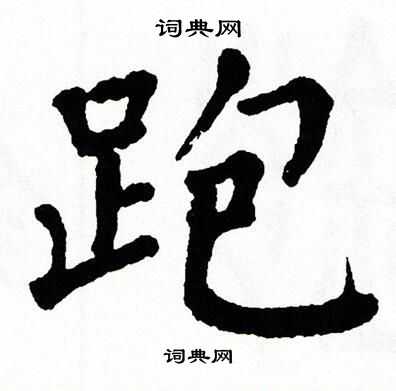 词典网
跑
词典网